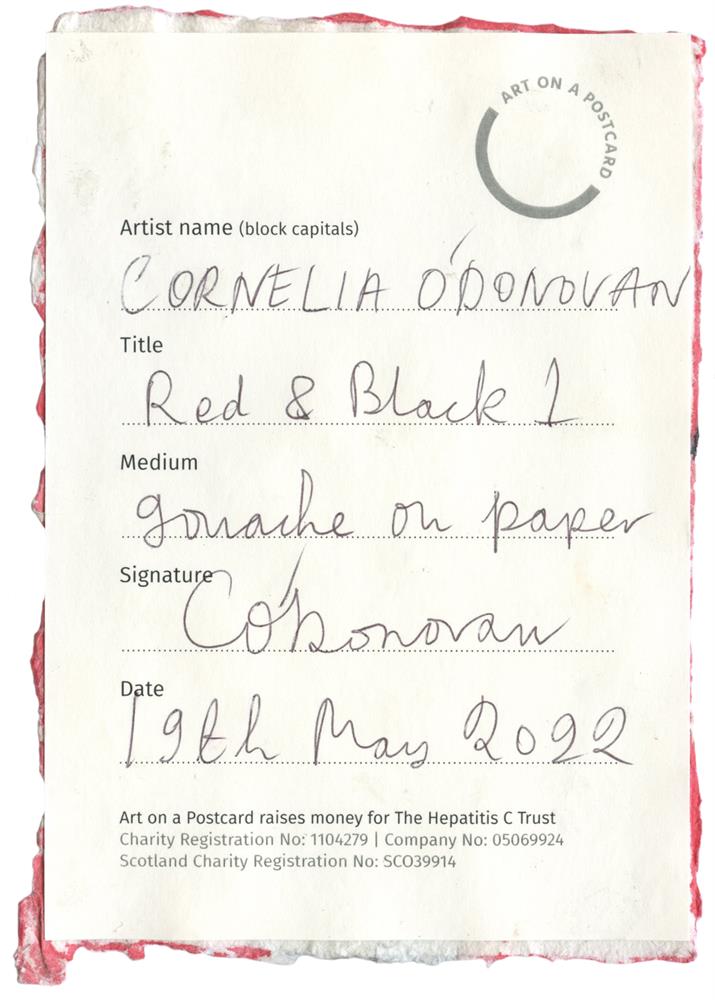 ART ON A POSTCARD
Artist name (block capitals)
CORNELIA O'DONOVAN
Title
Red & Black 1
Medium
gouache on paper
Signature
CO'Donovan
Date
19th May 2022
Art on a Postcard raises money for The Hepatitis C Trust
Charity Registration No: 1104279 | Company No: 05069924
Scotland Charity Registration No: SCO39914